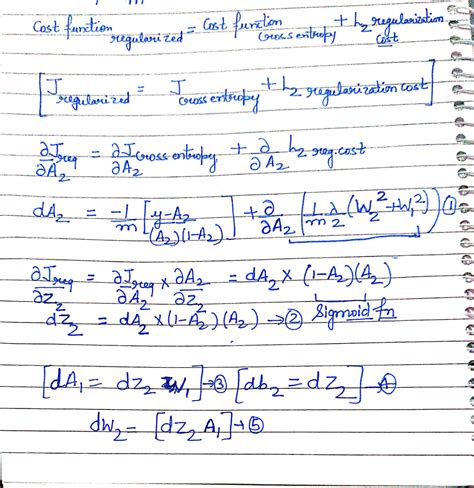 Cost function regularized = Cost function cross entropy + L2 regularization cost
[J regularized = J cross entropy + L2 regularization cost]
∂J_reg/∂A₂ = ∂J cross entropy/∂A₂ + ∂/∂A₂ L2 reg. cost
dA₂ = -1/m [y-A₂/(A₂)(1-A₂)] + ∂/∂A₂ [1/m λ/2 (W₂² + W₁²)] ①
∂J_reg/∂Z₂ = ∂J_reg/∂A₂ × ∂A₂/∂Z₂ = dA₂ × (1-A₂)(A₂)
dZ₂ = dA₂ × (1-A₂)(A₂) → ② Sigmoid fn
[dA₁ = dZ₂ W₁] → ③ [db₂ = dZ₂] → ④
dW₂ = [dZ₂ A₁] → ⑤